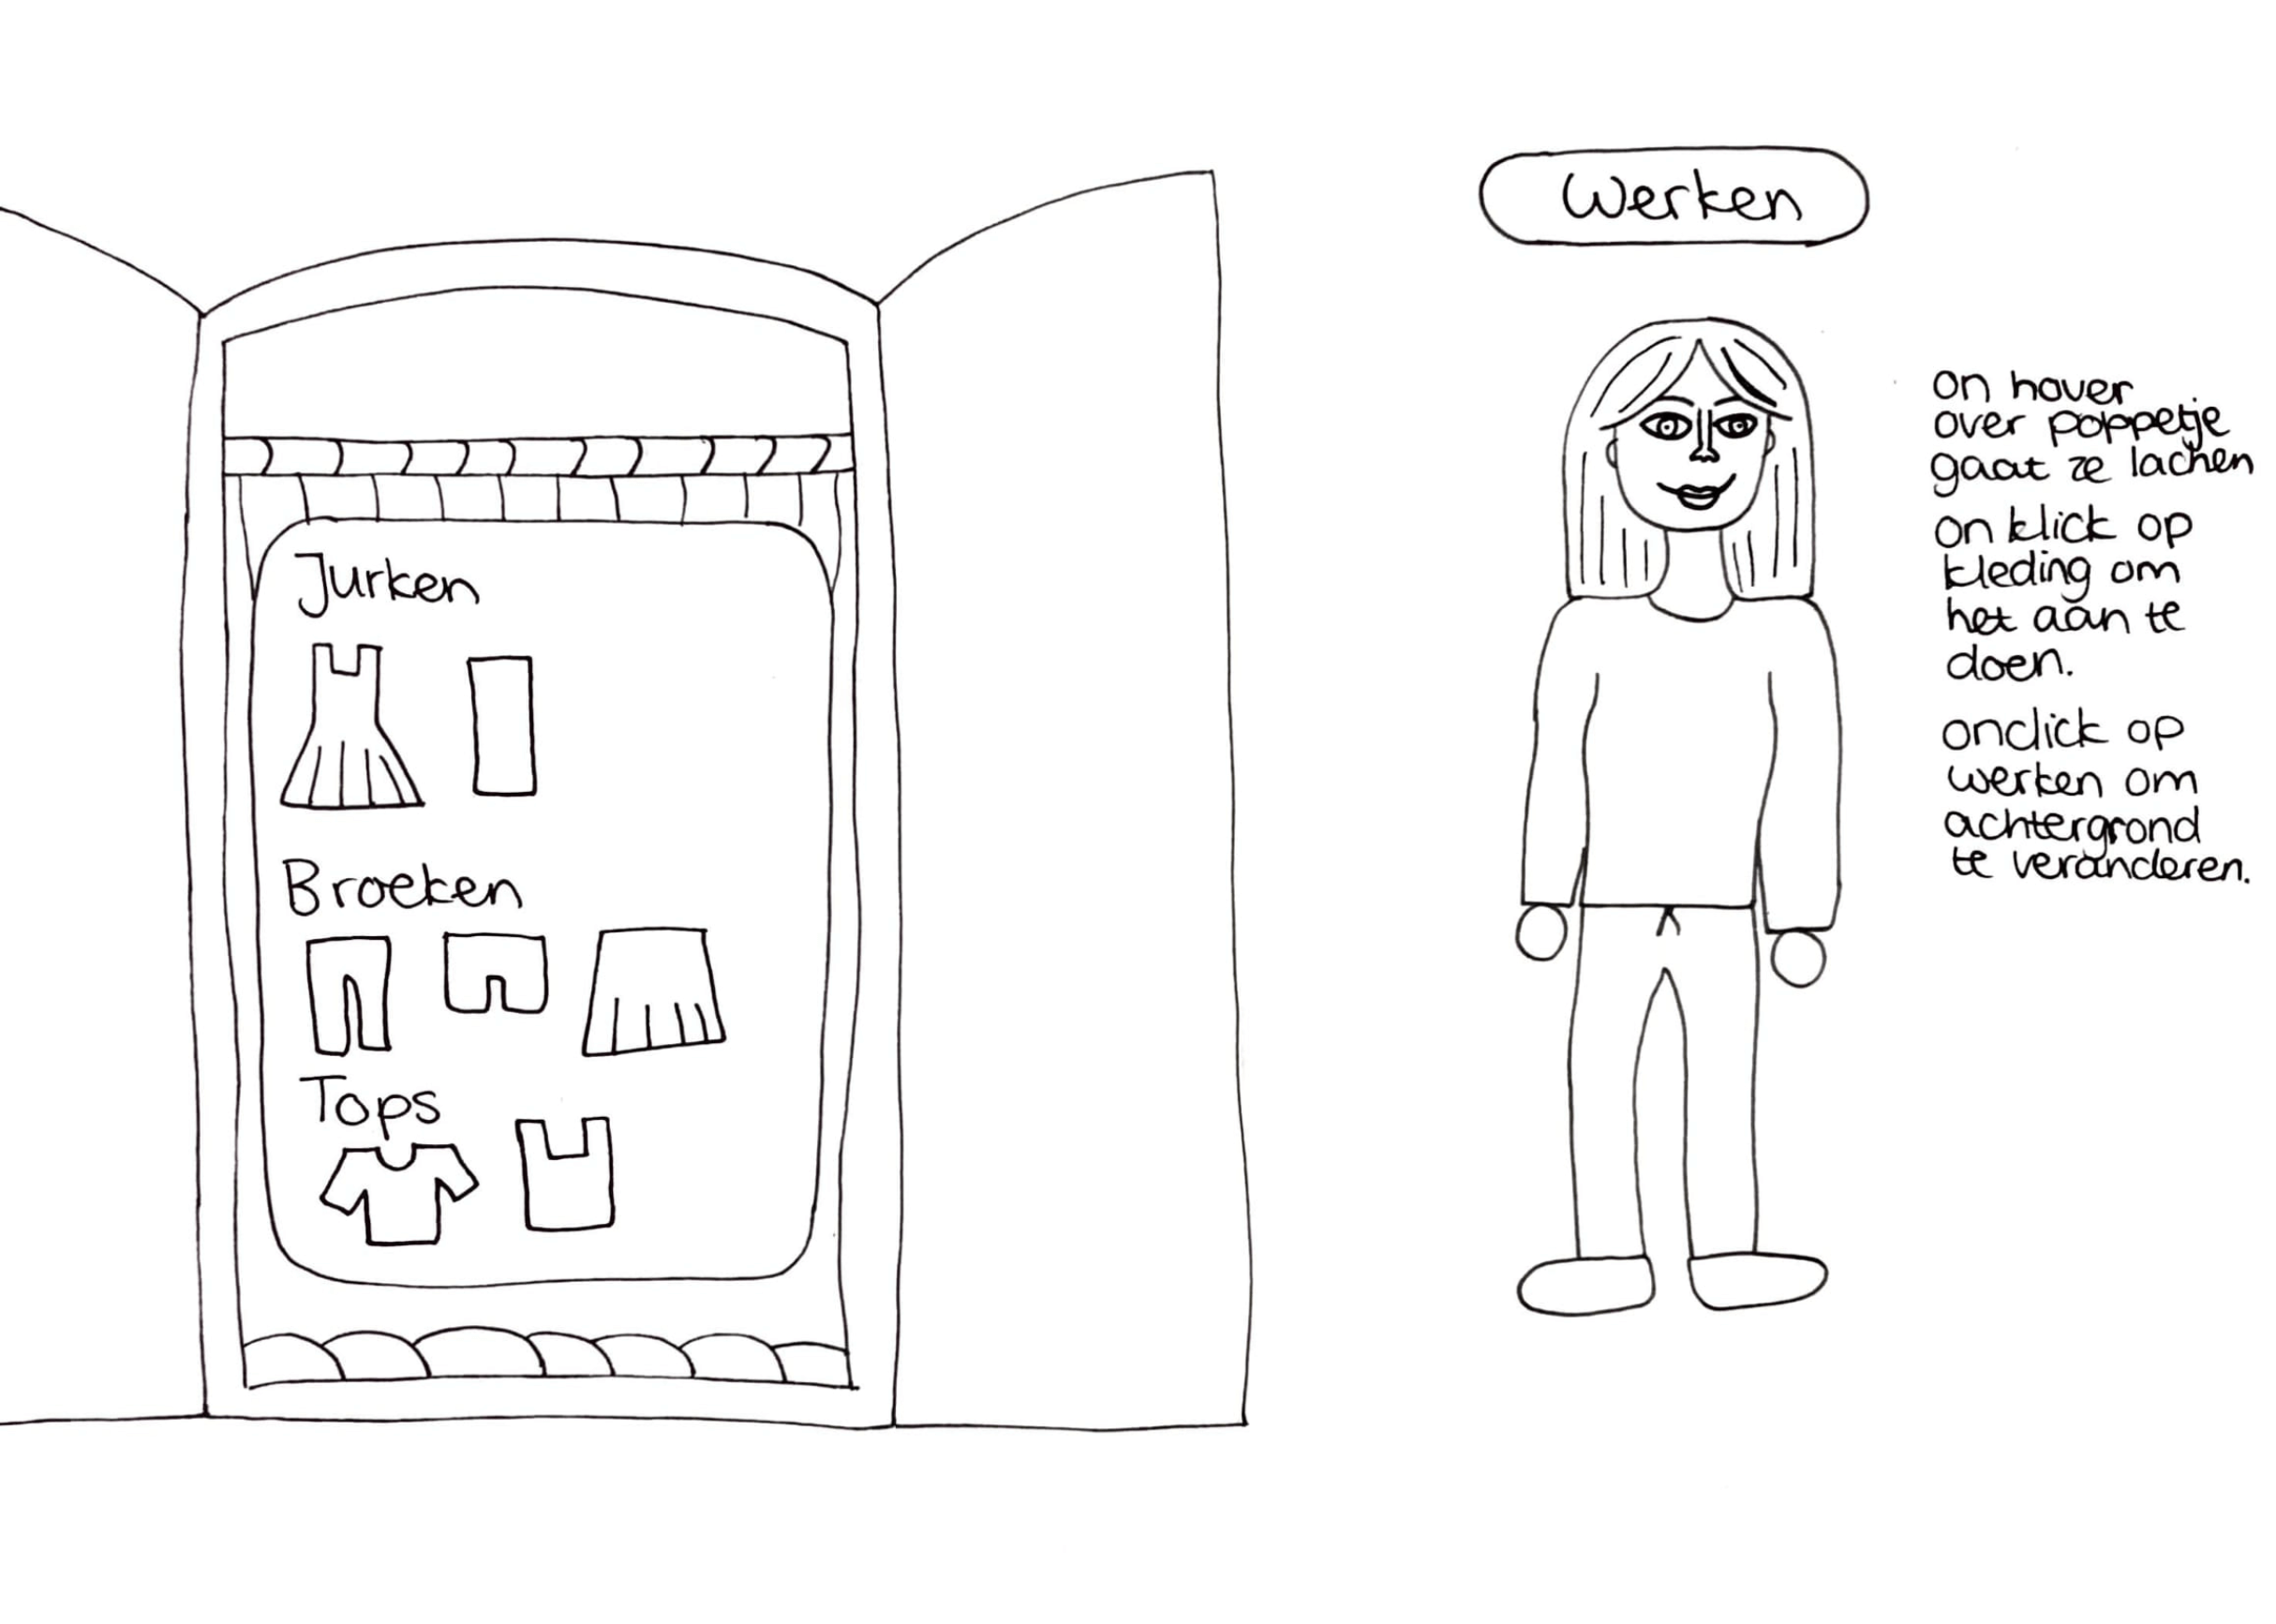 Werken
Jurken
Broeken
Tops
on hover
over poppetje
gaat ze lachen
on klick op
kleding om
het aan te
doen.
onclick op
werken om
achtergrond
te veranderen.